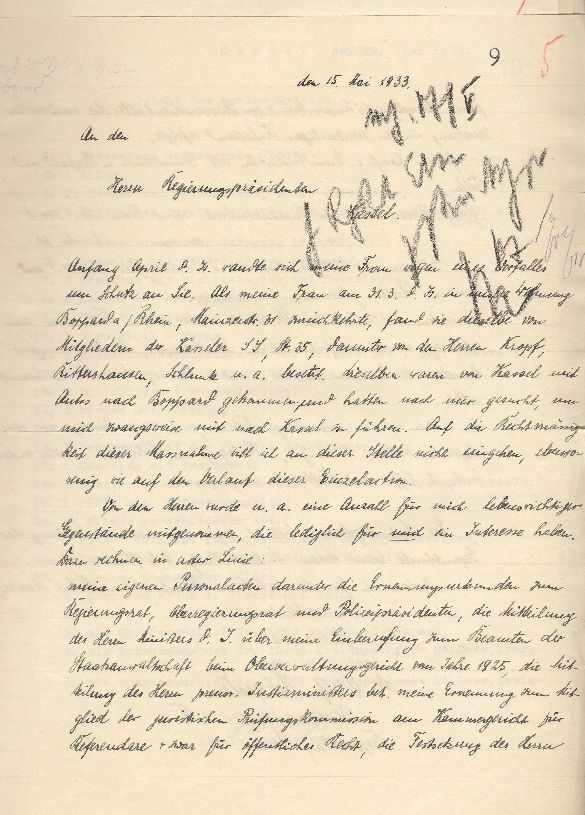 9
5
den 15. Mai 1933.
An den
Herrn Regierungspräsidenten
Kassel.
Anfang April d. Js. wandte sich meine Frau wegen eines Vorfalles
um Schutz an Sie. Als meine Frau am 31.3. d. Js. in unsere Wohnung
Boppard a/Rhein, Mainzerstr. 31 zurückkehrte, fand sie dieselbe von
Mitgliedern der Kasseler SS, St. 35, darunter von den Herren Kropf,
Rittershausen, Schlunk u. a. besetzt. Dieselben waren von Kassel mit
Autos nach Boppard gekommen und hatten nach mir gesucht, um
mich zwangsweise mit nach Kassel zu führen. Auf die Rechtmässig-
keit dieser Massnahme will ich an dieser Stelle nicht eingehen, ebenso-
wenig wie auf den Verlauf dieser Einzelaction.
Von den Herren wurde u. a. eine Anzahl für mich lebenswichtiger
Gegenstände mitgenommen, die lediglich für mich ein Interesse haben.
Dazu rechnen in erster Linie:
meine eigenen Personalacten darunter die Ernennungsurkunden zum
Regierungsrat, Oberregierungsrat und Polizeipräsidenten, die Mitteilung
des Herrn Ministers d. I. über meine Einberufung zum Beamten der
Staatsanwaltschaft beim Oberverwaltungsgericht vom Jahre 1925, die Mit-
teilung des Herrn preuss. Justizministers betr. meine Ernennung zum Mit-
glied der juristischen Prüfungskommission am Kammergericht für
Referendare u. zwar für öffentliches Recht, die Festsetzung des Herrn